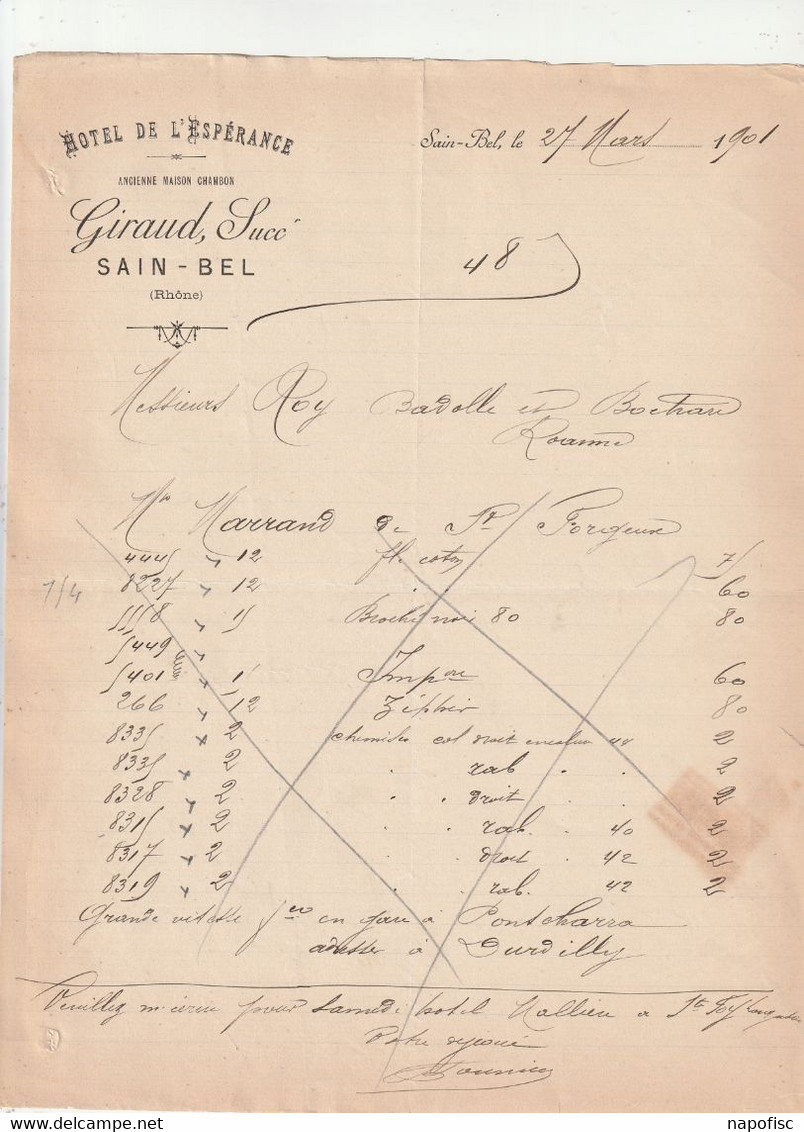 HOTEL DE L'ESPÉRANCE
ANCIENNE MAISON CHAMBON
Giraud, Succr
SAIN-BEL
(Rhône)
Sain-Bel, le 27 Mars 1901
48
Messieurs Roy Badolle et
Roanne
Mr Marrand de St Forgeux
4445 12 fl. coton 75
1/4 8227 12 . 60
5558 15 Broché noir 80 80
5449
5401 1 Impon 60
266 12 Zéphir 80
8335 2 chemises col droit 2
8335 2 . rab . . 2
8328 2 . . droit . . 2
8315 2 . . rab. . 40 2
8317 2 . . droit . 42 2
8319 2 . . rab. 42 2
Grande vitesse fco en gare à Pontcharra
adresser à Durdilly
Veuillez m'écrire pour Samedi hotel à Ste Foy
Votre
napofisc